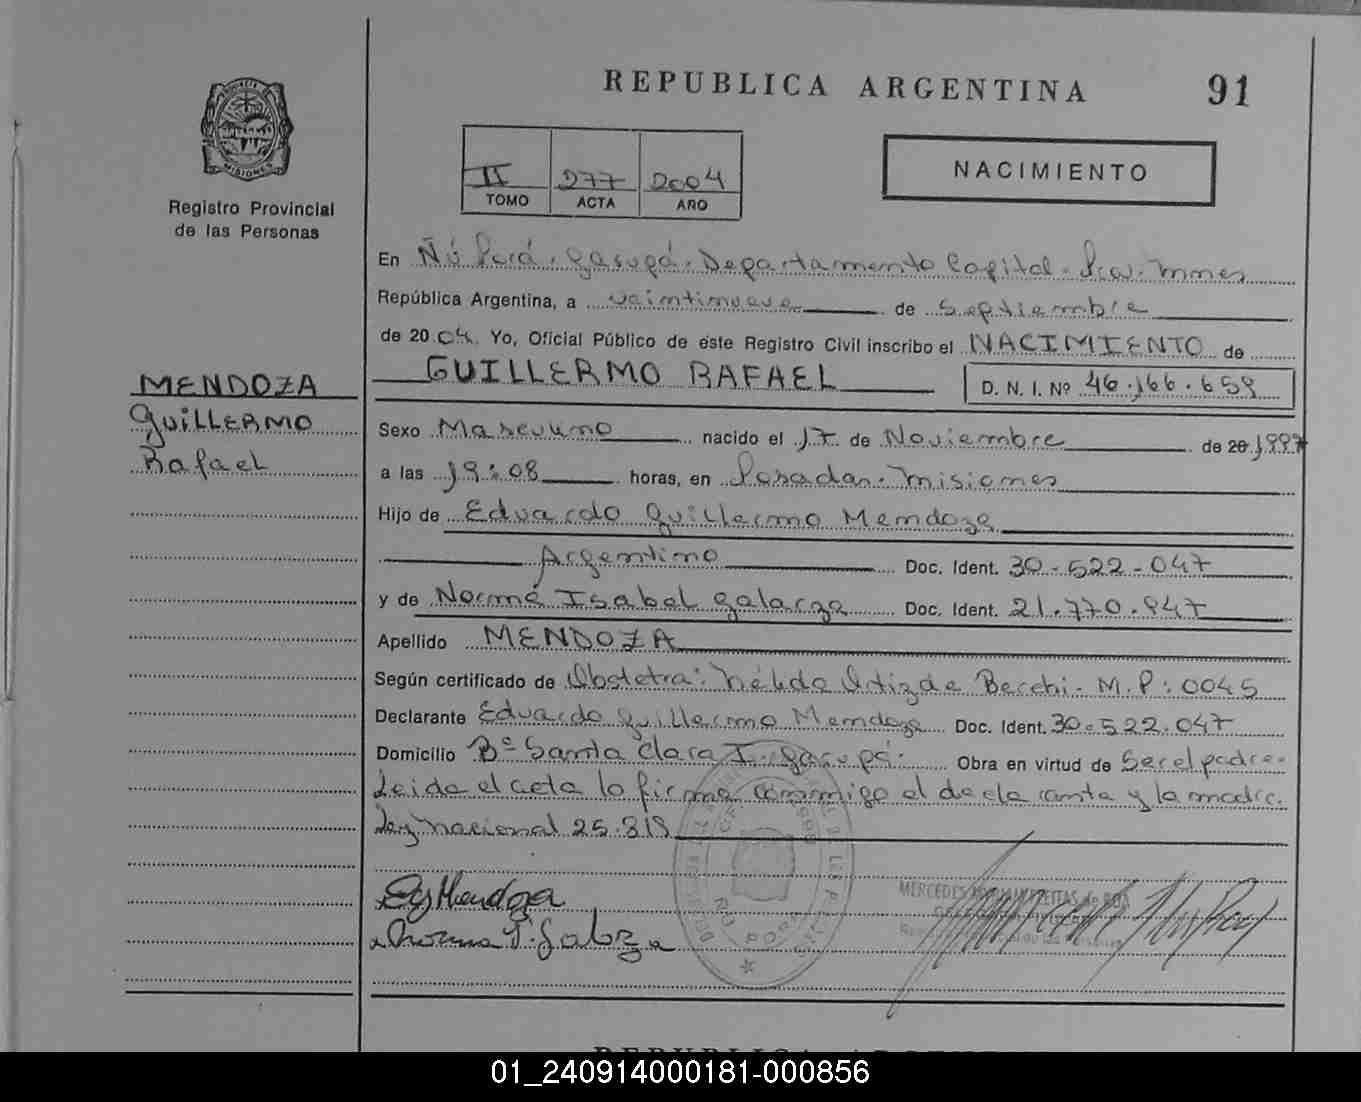 REPUBLICA ARGENTINA 91
MISIONES
Registro Provincial
de las Personas
II 277 2004
TOMO ACTA AÑO
NACIMIENTO
En Ñú Porá. Garupá. Departamento Capital. Pcia. Mnes
República Argentina, a veintinueve de Septiembre
de 2004. Yo, Oficial Público de este Registro Civil inscribo el NACIMIENTO de
GUILLERMO RAFAEL D. N. I. Nº 46.166.659
MENDOZA
Guillermo
Rafael
Sexo Masculino nacido el 17 de Noviembre de 20 1997
a las 19:08 horas, en Posadas. Misiones
Hijo de Eduardo Guillermo Mendoza
Argentino Doc. Ident. 30-522-047
y de Norma Isabel Galarza Doc. Ident. 21.770.847
Apellido MENDOZA
Según certificado de Obstetra: Nélida Ortiz de Becchi. M.P: 0045
Declarante Eduardo Guillermo Mendoza Doc. Ident. 30-522.047
Domicilio Bº Santa Clara I. Garupá. Obra en virtud de Ser el padre-
Leida el acta la firma conmigo el declarante y la madre.
Ley Nacional 25.819
Mendoza
Norma I. Galarza
MERCEDES de ROA
REPUBLICA
01_240914000181-000856